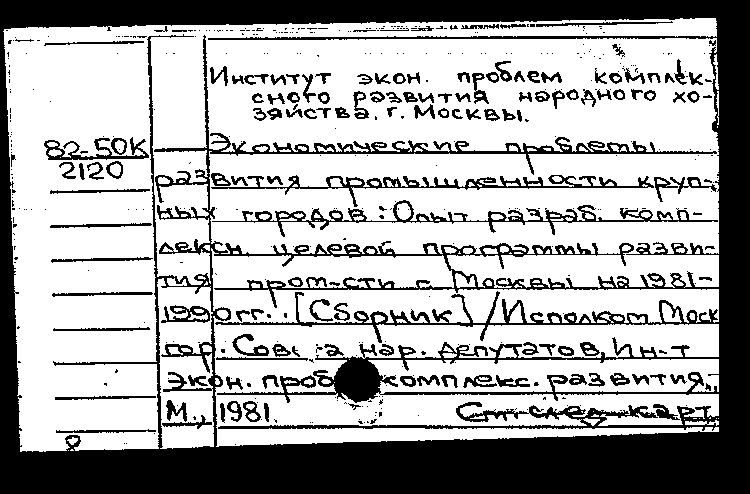 Институт экон. проблем комплек-
сного развития народного хо-
зяйства, г. Москвы.
82-50К
2120
Экономические проблемы
развития промышленности круп-
ных городов: Опыт разраб. комп-
лексн. целевой программы разви-
тия пром-сти г. Москвы на 1981-
1990гг.. [Сборник] / Исполком Моск
гор. нар. депутатов, Ин-т
экон. проб комплекс. развития,
М., 1981. См. след. карт.
8